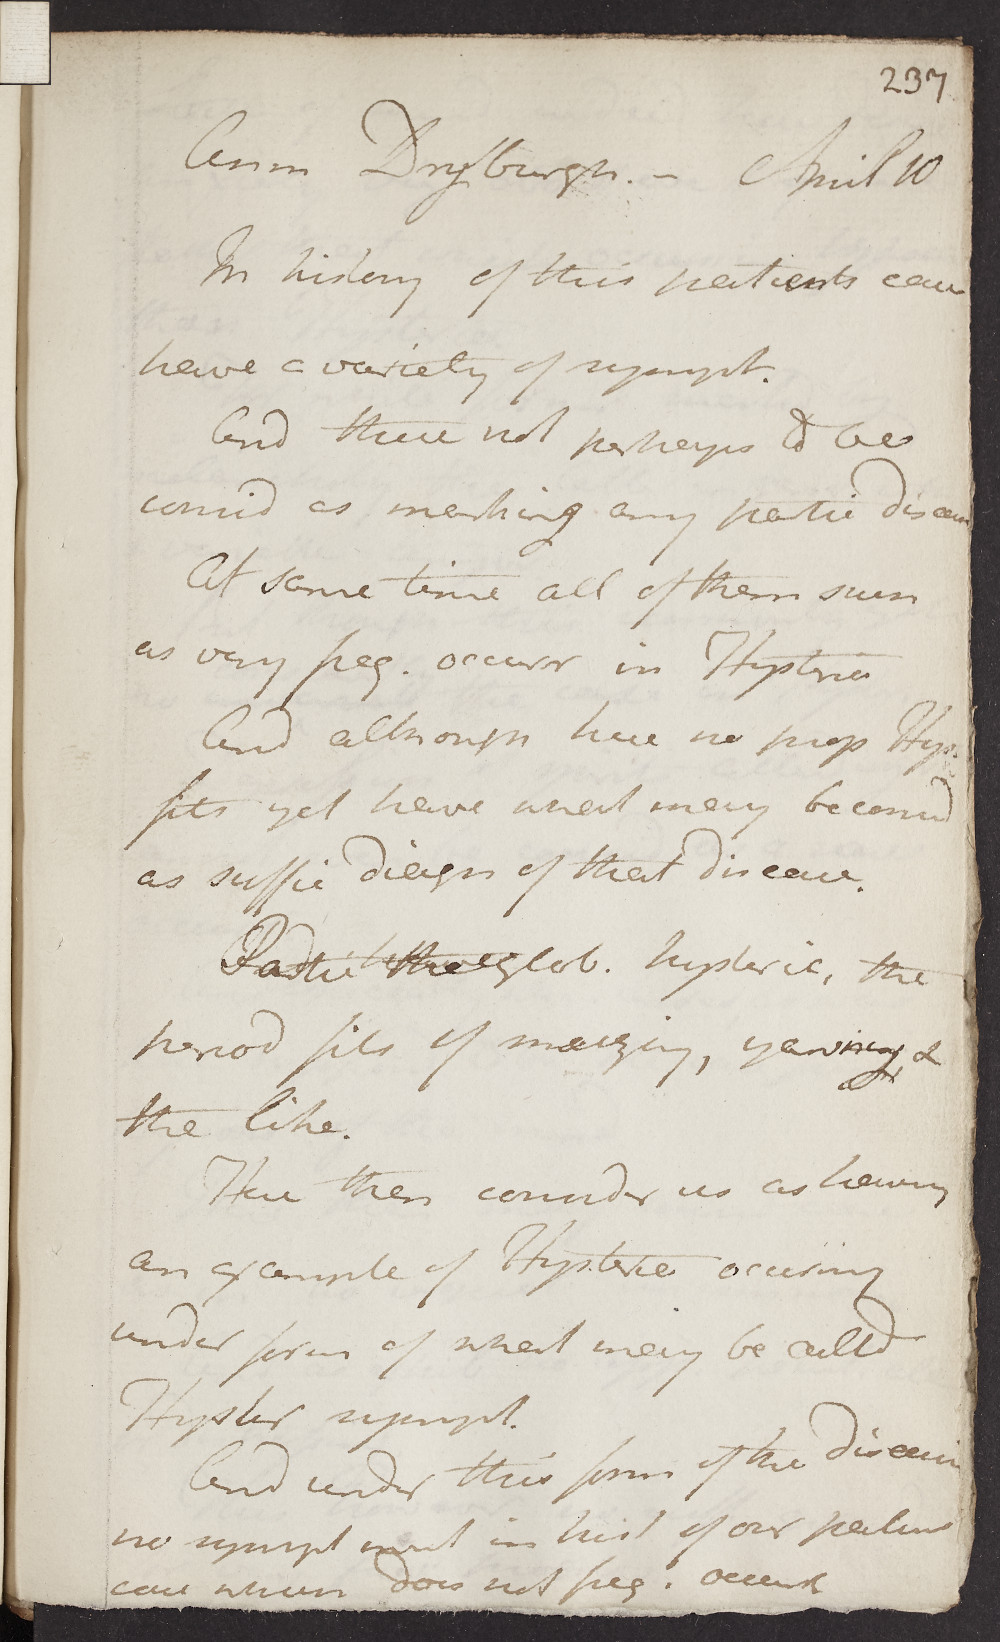 237
Ann Dryburgh. - April 10
In history of this patients case
have a variety of sympt.
And these not perhaps to be
consid as marking any partic disease
At same time all of them such
as very freq. occurr in Hysteria
And although here no prop Hys.
fits yet have what may be consid
as suffic diagn of that disease.
Partic the glob. hysteric, the
period fits of yawning, &
the like.
Here then consider us as having
an example of Hysteria occuring
under form of what may be called
Hyster sympt.
And under this form of the disease
no sympt in hist of our patients
case which does not freq. occurr